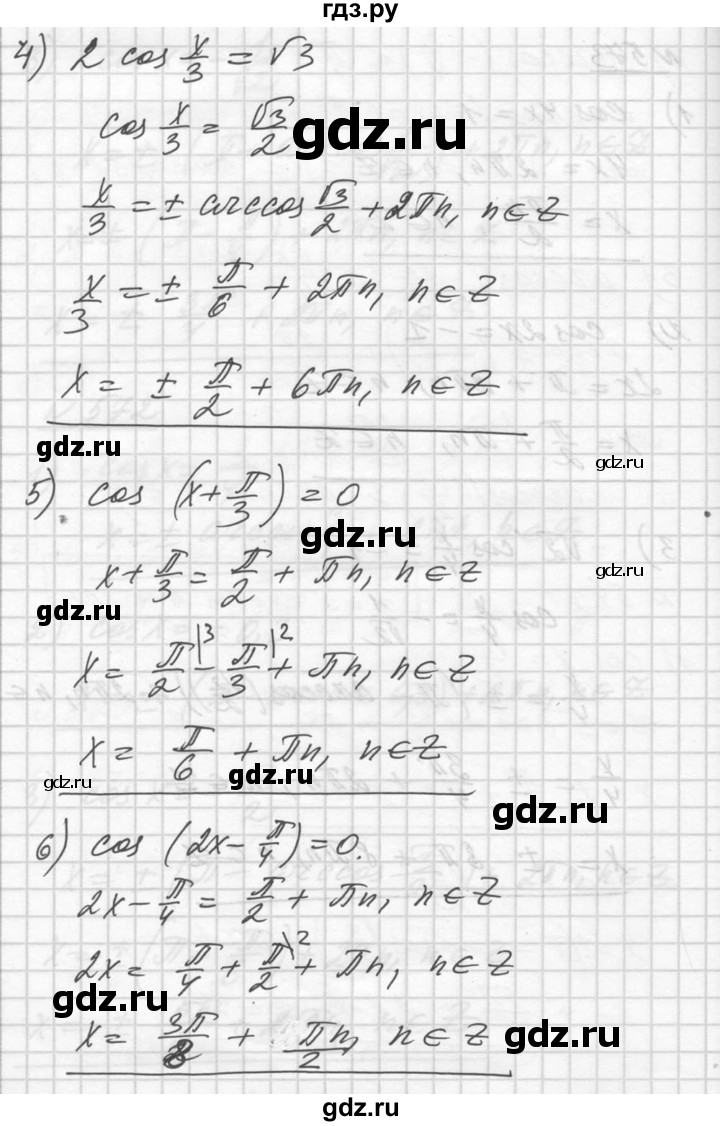 гдз.ру
4) 2 cos x/3 = √3
cos x/3 = √3/2
gdz.ru
x/3 = ± arccos √3/2 + 2πn, n∈Z
x/3 = ± π/6 + 2πn, n∈Z
x = ± π/2 + 6πn, n∈Z
gdz.ru
gdz.ru
5) cos (x+π/3) = 0
gdz.ru
x+π/3 = π/2 + πn, n∈Z
gdz.ru
gdz.ru
x = π/2\3 − π/3\2 + πn, n∈Z
x = π/6 + πn, n∈Z
gdz.ru
gdz.ru
gdz.ru
6) cos (2x−π/4)=0.
2x−π/4 = π/2 + πn, n∈Z
2x = π/4 + π/2\2 + πn, n∈Z
gdz.ru
x = 3π/8 + πn/2, n∈Z
gdz.ru
gdz.ru